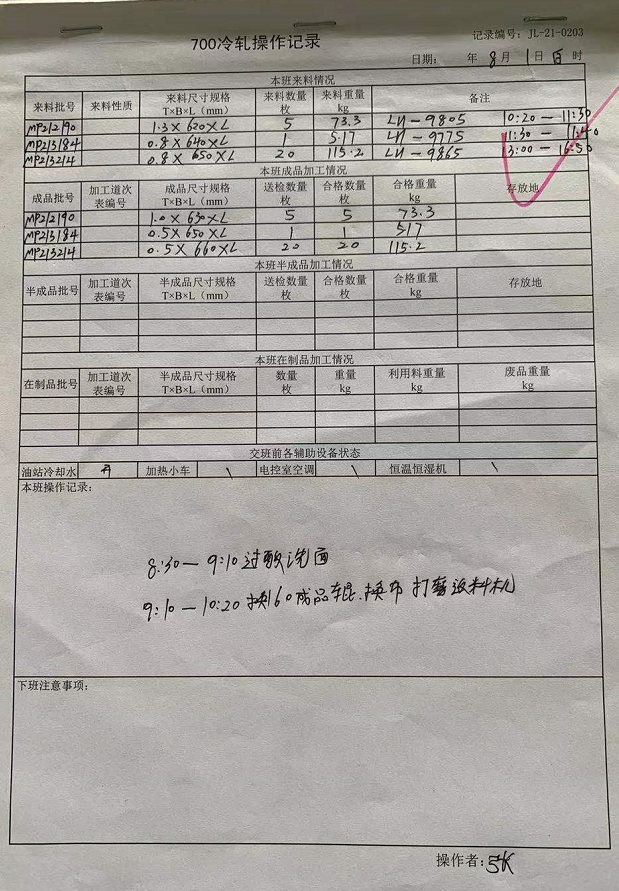 700冷轧操作记录
记录编号：JL-21-0203
日期： 年 8 月 1 日 白 时
本班来料情况
来料批号 来料性质 来料尺寸规格 T×B×L（mm） 来料数量 枚 来料重量 kg 备注
MP212190 1.3×620×L 5 73.3 LH-9805 10:20-11:30
MP213184 0.8×640×L 1 5.17 LH-9775 11:30-11:40
MP213214 0.8×650×L 20 115.2 LH-9865 13:00-16:30
本班成品加工情况
成品批号 加工道次表编号 成品尺寸规格 T×B×L（mm） 送检数量 枚 合格数量 枚 合格重量 kg 存放地
MP212190 1.0×630×L 5 5 73.3
MP213184 0.5×650×L 1 1 517
MP213214 0.5×660×L 20 20 115.2
本班半成品加工情况
半成品批号 加工道次表编号 半成品尺寸规格 T×B×L（mm） 送检数量 枚 合格数量 枚 合格重量 kg 存放地
本班在制品加工情况
在制品批号 加工道次表编号 半成品尺寸规格 T×B×L（mm） 数量 枚 重量 kg 利用料重量 kg 废品重量 kg
交班前各辅助设备状态
油站冷却水 开 加热小车 \ 电控室空调 \ 恒温恒湿机 \
本班操作记录：
8:30-9:10过酸洗面
9:10-10:20换160成品辊.换布 打磨送料机
下班注意事项：
操作者：